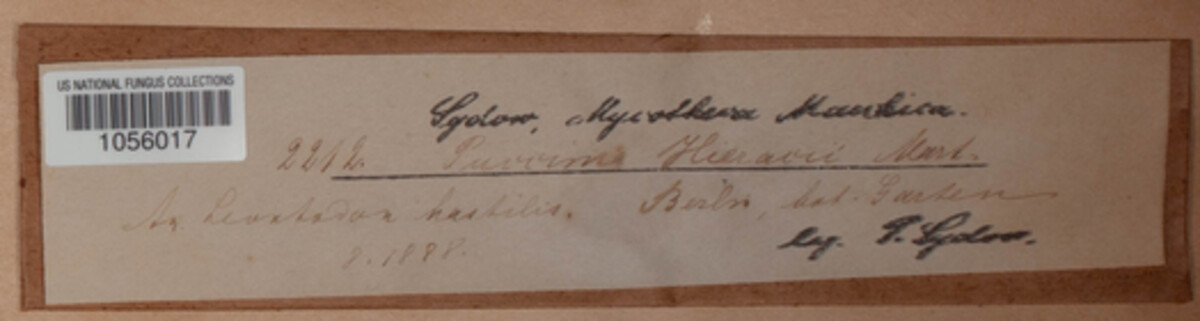 US NATIONAL FUNGUS COLLECTIONS
1056017
Sydow, Mycotheca Marchica.
2212. Puccinia Hieracii Mart.
An Leontodon hastilis. Berlin, bot. Garten
8.1888.
leg. P. Sydow.